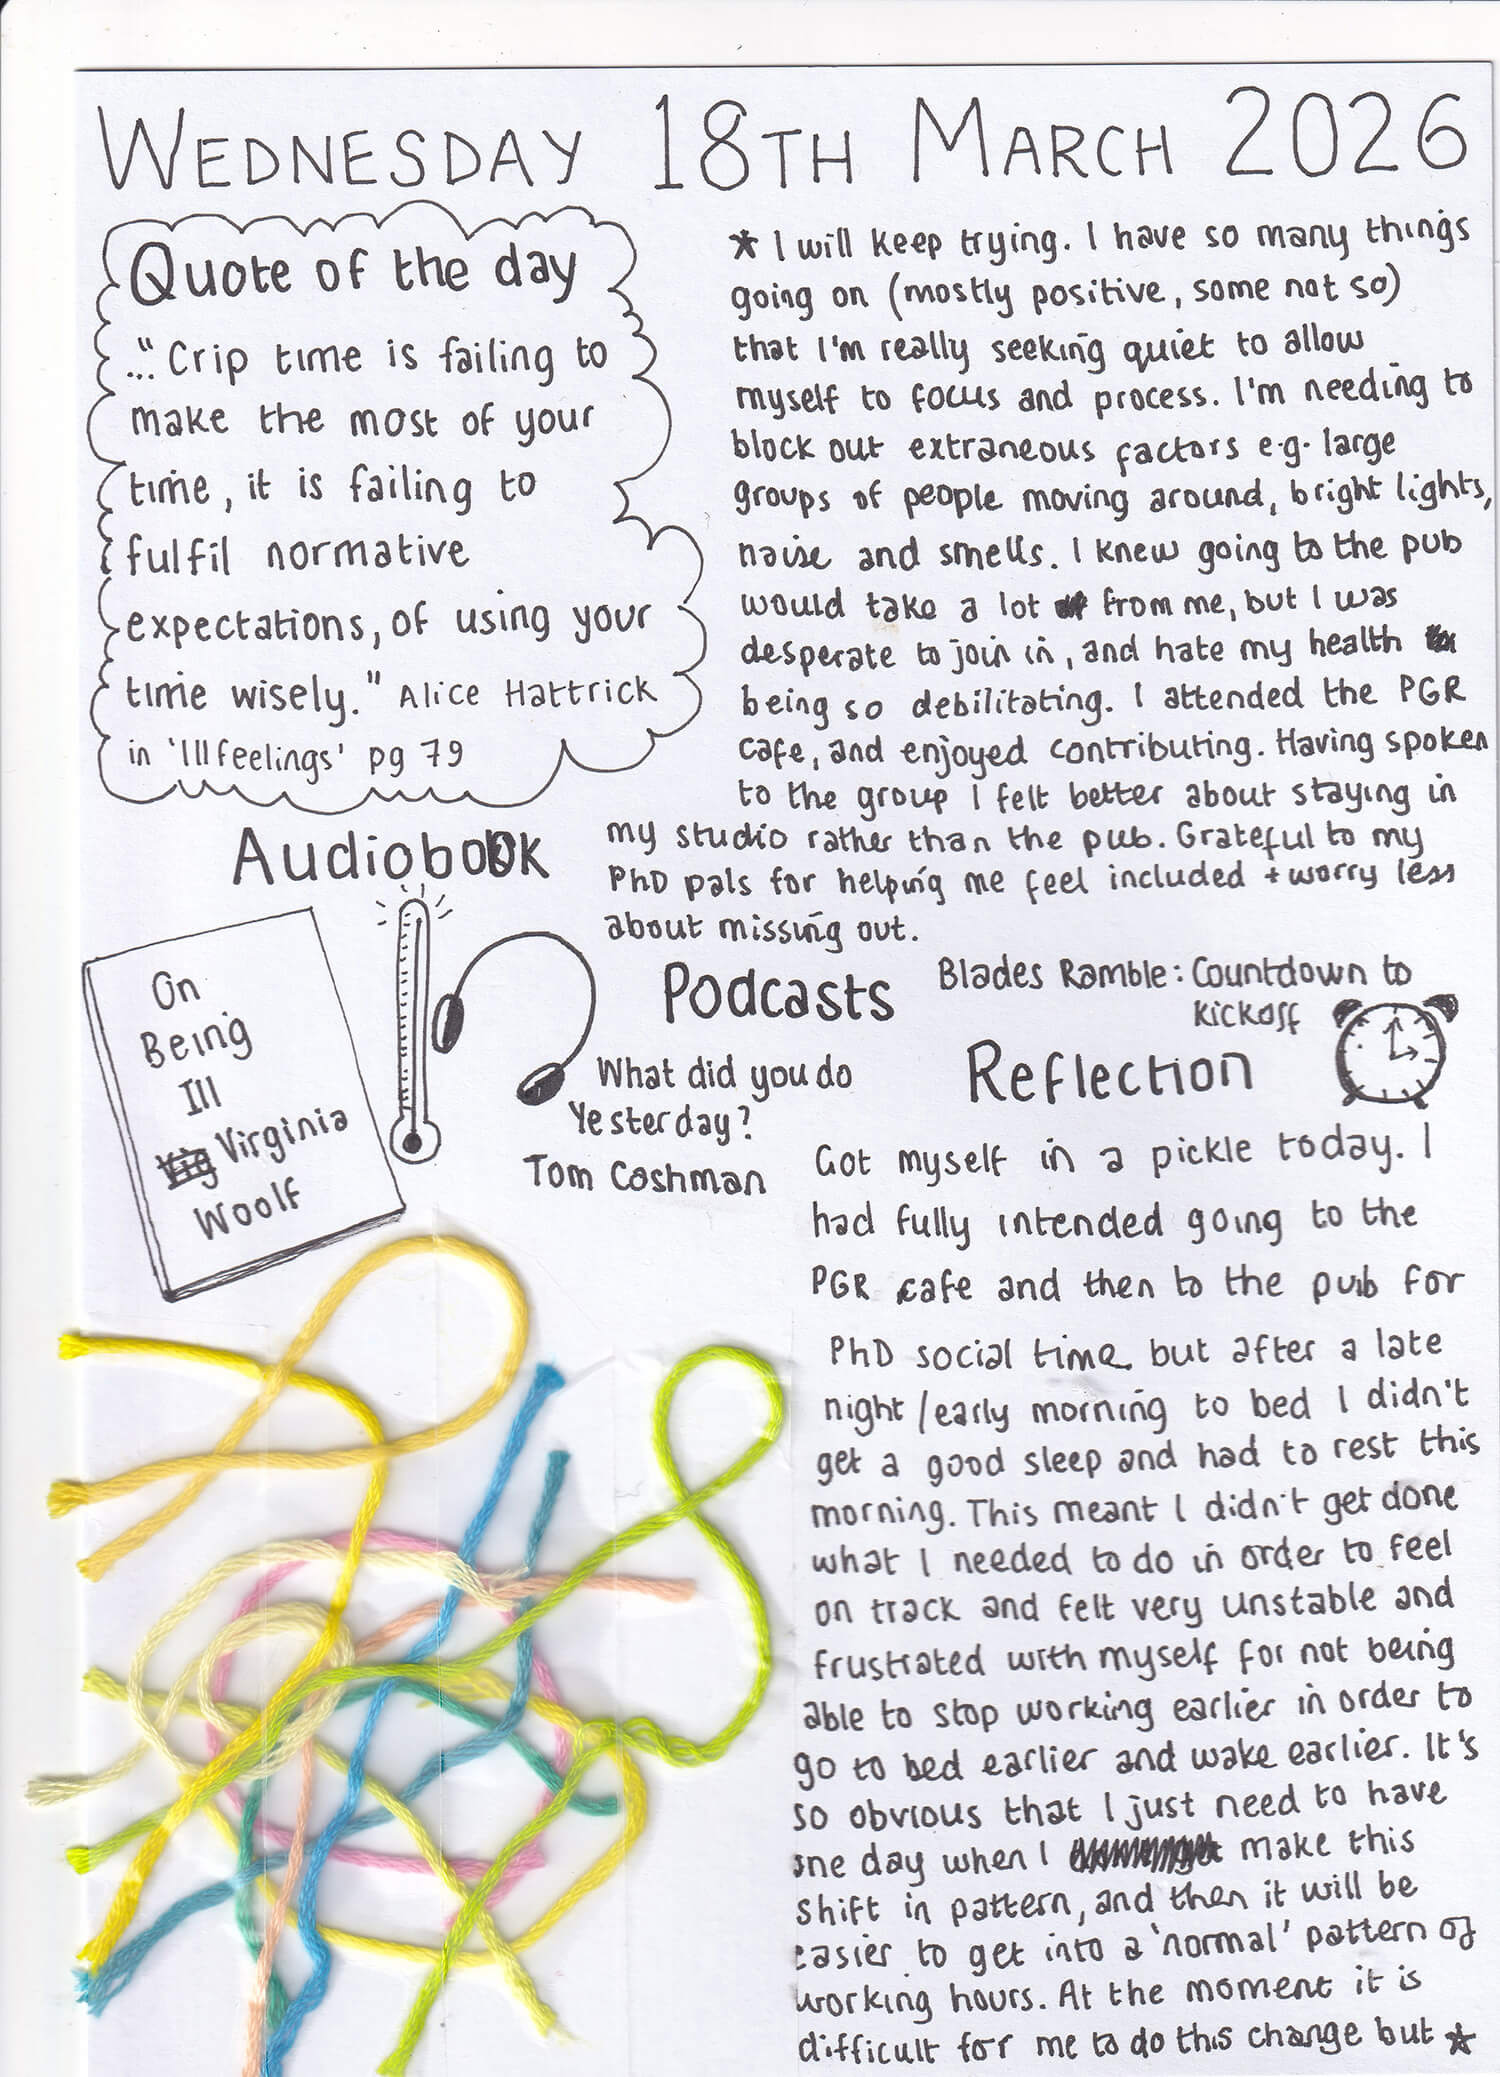 WEDNESDAY 18TH MARCH 2026
Quote of the day
..."Crip time is failing to
make the most of your
time, it is failing to
fulfil normative
expectations, of using your
time wisely." Alice Hattrick
in 'Ill feelings' pg 79
Audiobook
On
Being
Ill
Virginia
Woolf
Podcasts
Blades Ramble: Countdown to
Kickoff
What did you do
Yesterday?
Tom Cashman
Reflection
Got myself in a pickle today. I
had fully intended going to the
PGR cafe and then to the pub for
PhD social time but after a late
night/early morning to bed I didn't
get a good sleep and had to rest this
morning. This meant I didn't get done
what I needed to do in order to feel
on track and felt very unstable and
frustrated with myself for not being
able to stop working earlier in order to
go to bed earlier and wake earlier. It's
so obvious that I just need to have
one day when I make this
shift in pattern, and then it will be
easier to get into a 'normal' pattern of
working hours. At the moment it is
difficult for me to do this change but *
* I will keep trying. I have so many things
going on (mostly positive, some not so)
that I'm really seeking quiet to allow
myself to focus and process. I'm needing to
block out extraneous factors e.g. large
groups of people moving around, bright lights,
noise and smells. I knew going to the pub
would take a lot from me, but I was
desperate to join in, and hate my health
being so debilitating. I attended the PGR
cafe, and enjoyed contributing. Having spoken
to the group I felt better about staying in
my studio rather than the pub. Grateful to my
PhD pals for helping me feel included + worry less
about missing out.